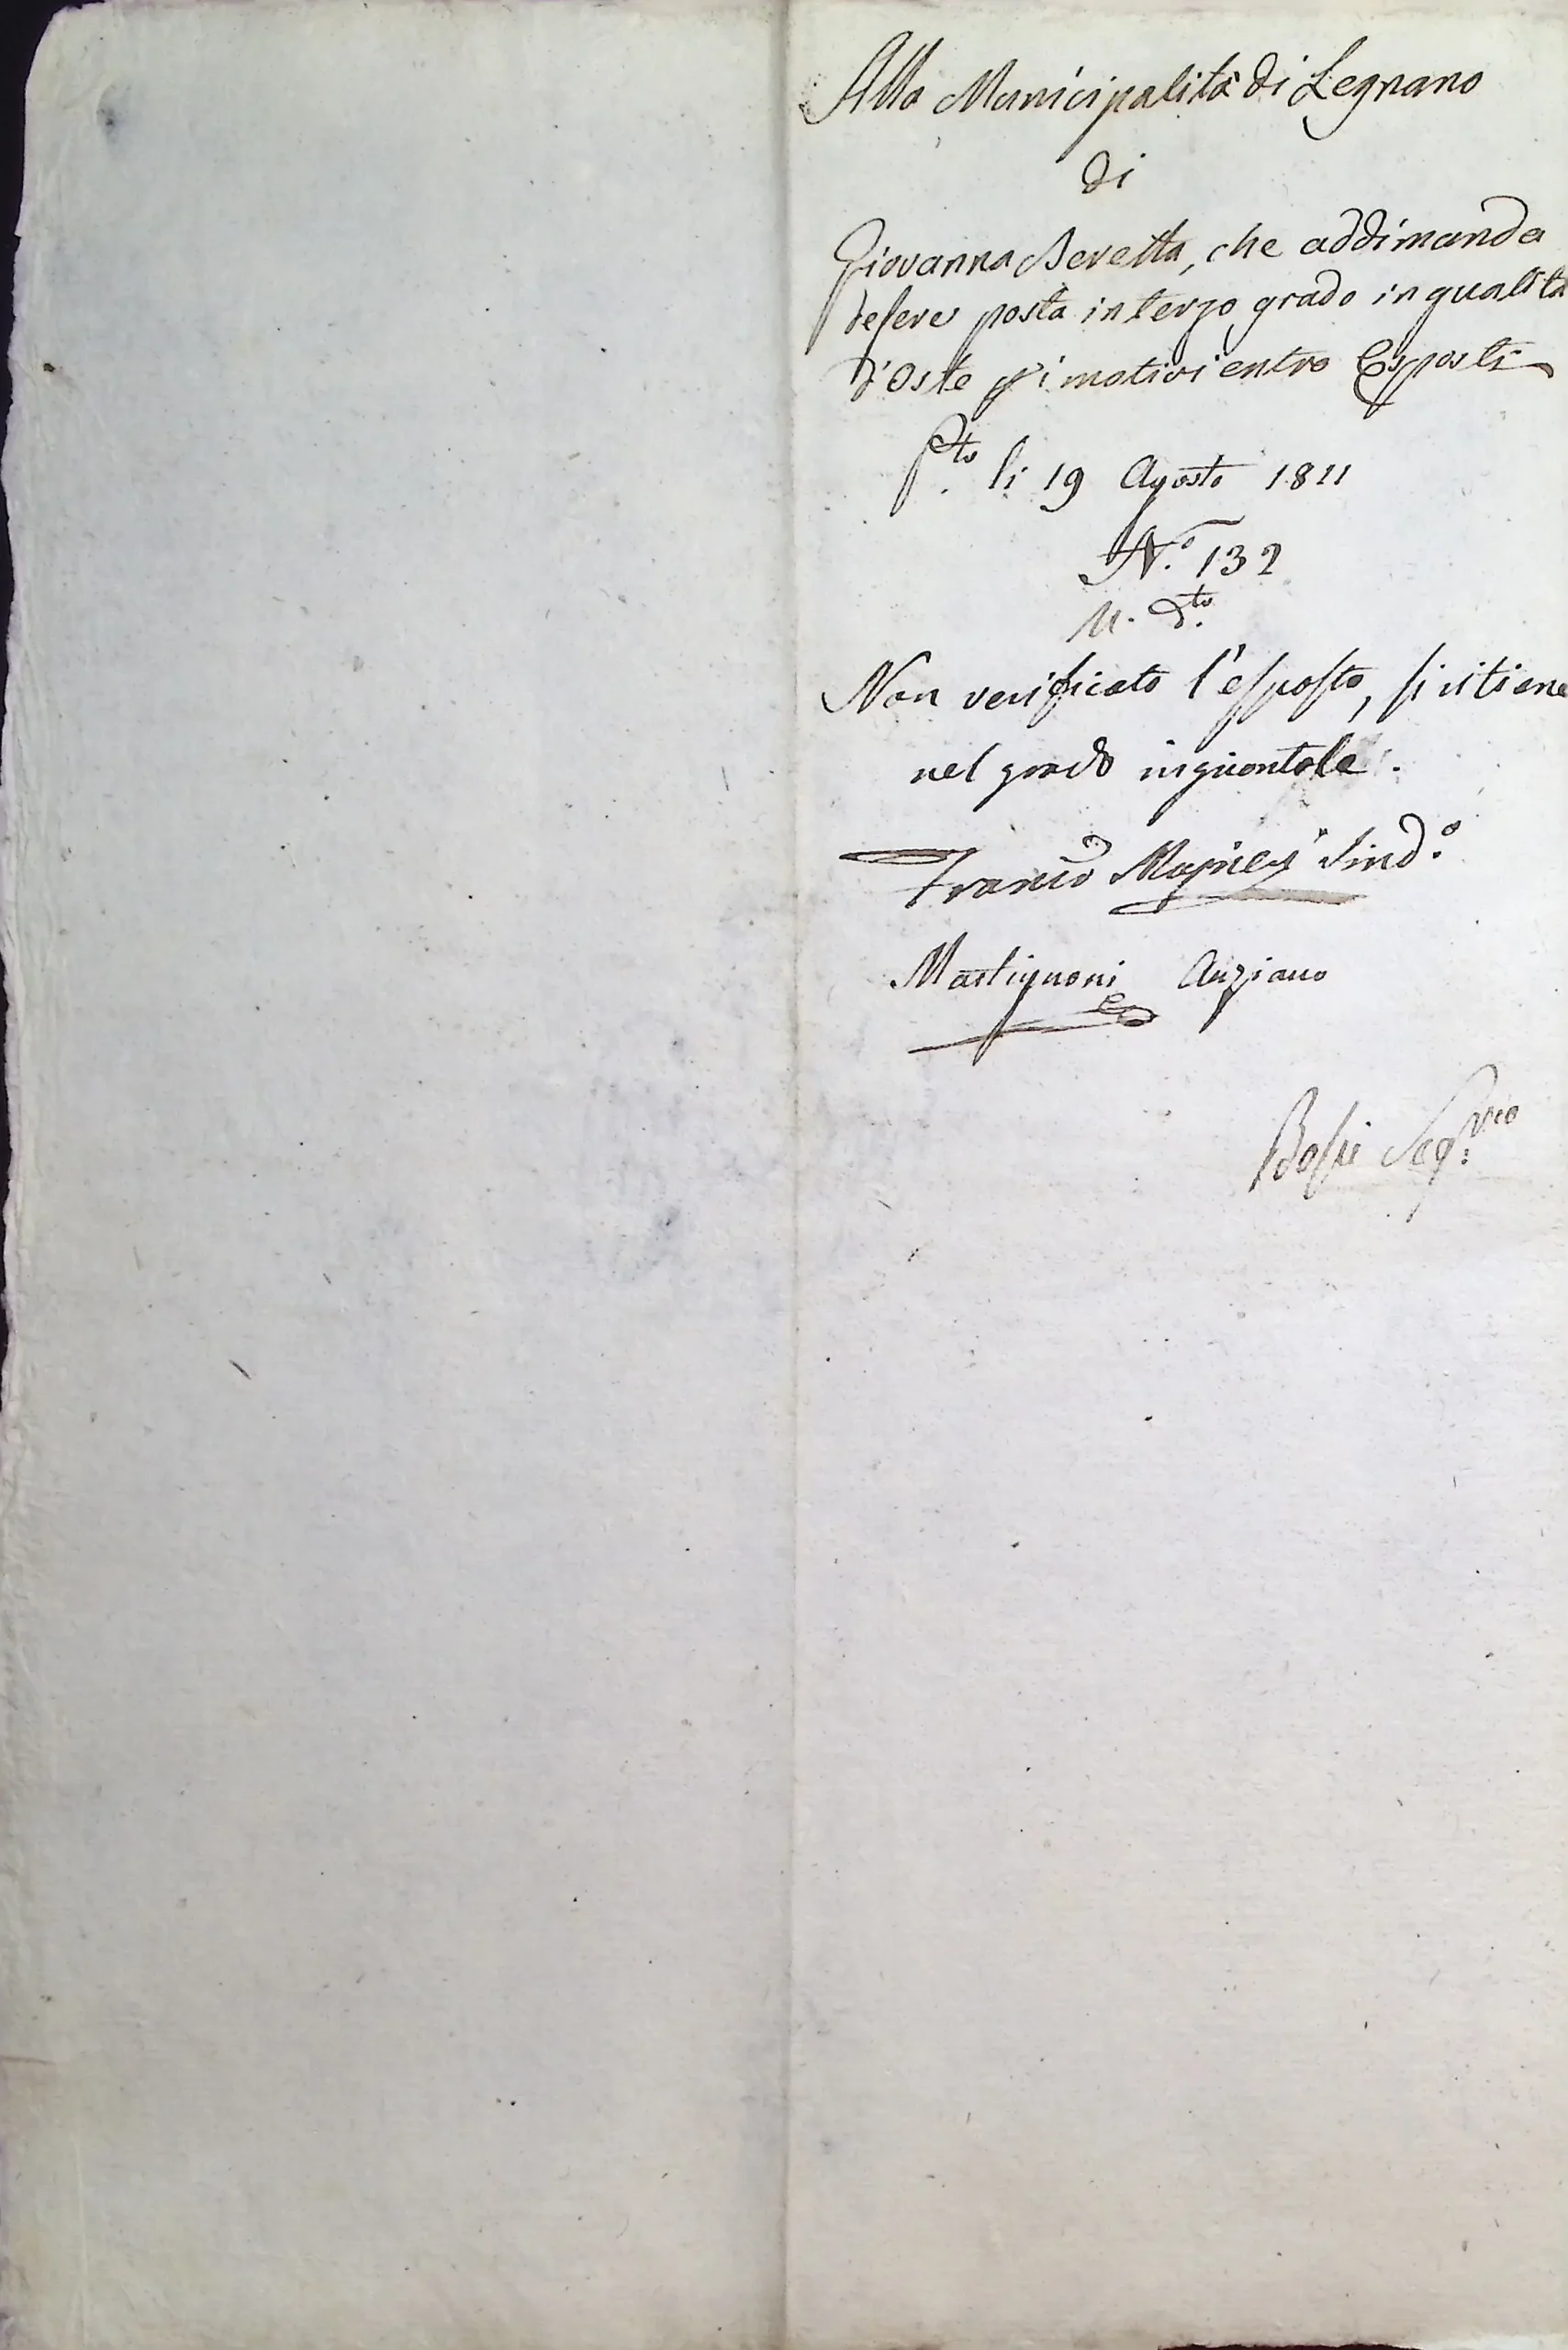 Alla Municipalità di Legnano
di
Giovanna Beretta, che addimanda
d'essere posta in terzo grado in qualità
d'Oste p i motivi entro Esposti
P.to li 19 Agosto 1811
N.° 132
Non verificato l'esposto, si ritiene
nel grado inquontole.
Franco Sind.°
Martignoni Anziano
Bossi Seg.rio